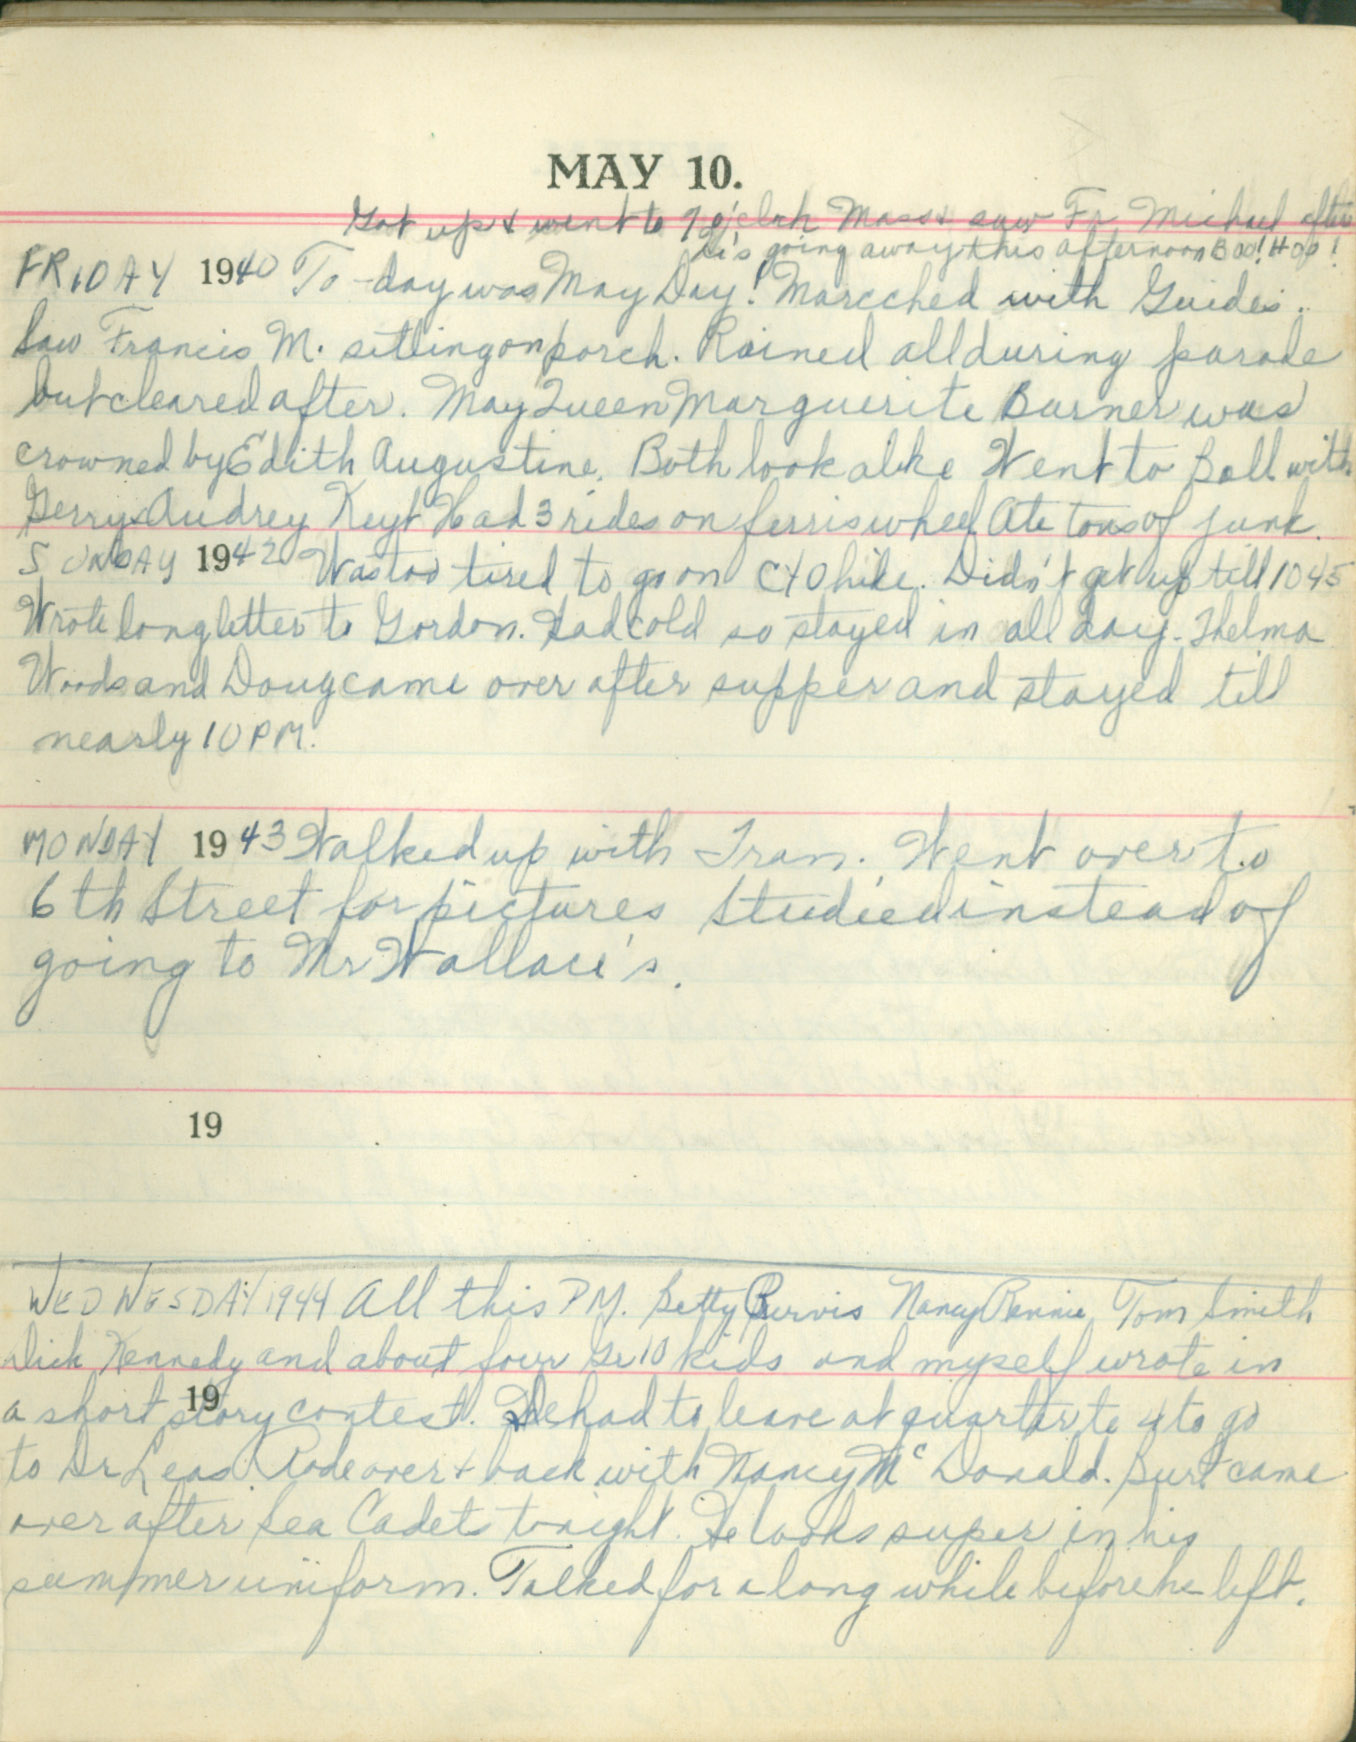 MAY 10.
Got up & went to 7 o'clock Mass & saw Fr Michael after
He's going away this afternoon Boo! Hoo!
FRIDAY 1940 To-day was May Day! Marcched with Guides.
Saw Francis M. sitting on porch. Rained all during parade
but cleared after. May Queen Marguerite Burner was
crowned by Edith Augustine. Both look alike Went to Ball with
Gerry & Audrey Keyt Had 3 rides on ferris wheel Ate tons of junk.
SUNDAY 1942 Was too tired to go on CYO hike. Didn't get up till 10 45
Wrote long letter to Gordon. Had cold so stayed in all day. Thelma
Woods and Doug came over after supper and stayed till
nearly 10 PM.
MONDAY 1943 Walked up with Fran. Went over to
6th Street for pictures Studied instead of
going to Mr Wallace's.
19
WEDNESDAY 1944 All this PM. Betty Purvis Nancy Rennie Tom Smith
Dick Kennedy and about four Gr 10 kids and myself wrote in
19
a short story contest. had to leave at quarter to 4 to go
to Dr Leas. Rode over & back with Nancy McDonald. Burt came
over after Sea Cadets tonight. He looks super in his
summer uniform. Talked for a long while before he left.